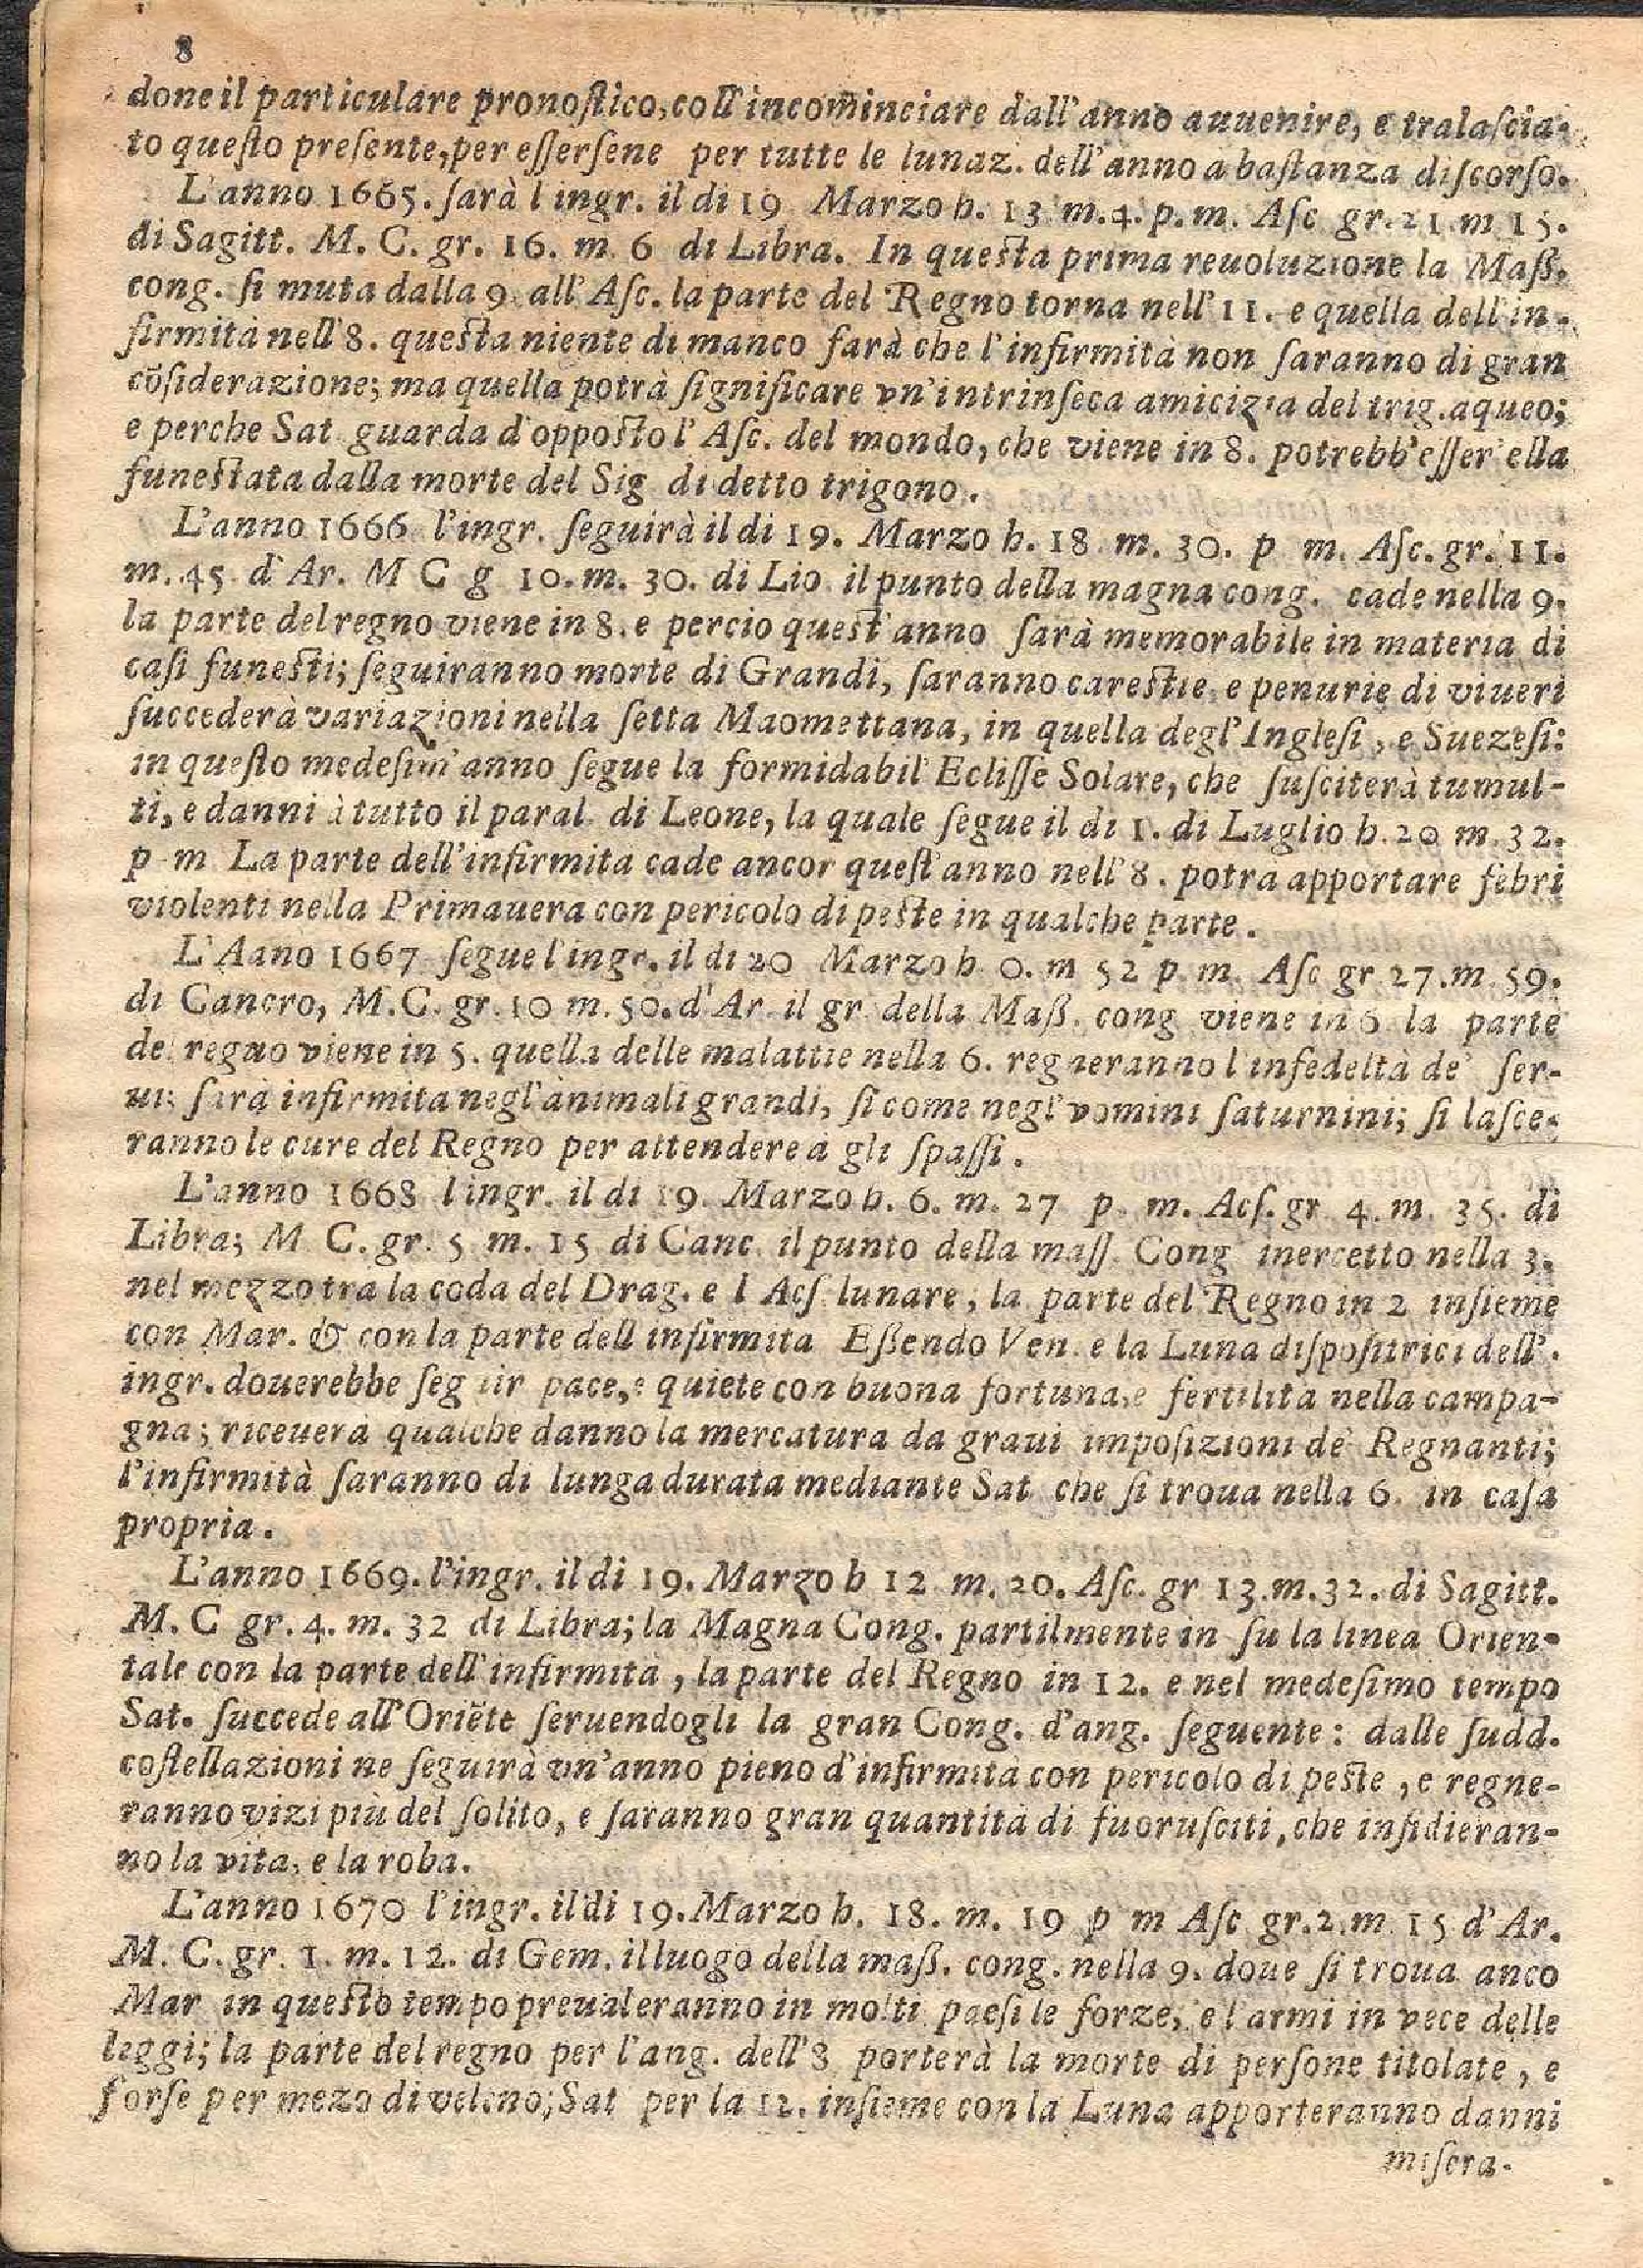 8
done il particulare pronoſtico, coll'incominciare dall'anno auuenire, e tralaſcia-
to queſto preſente, per eſſerſene per tutte le lunaz. dell'anno a baſtanza diſcorſo.
L'anno 1665. ſarà l ingr. il di 19 Marzo h. 13 m. 4. p. m. Aſc gr. 21 m 15.
di Sagitt. M. C. gr. 16. m. 6 di Libra. In queſta prima reuoluzione la Maß.
cong. ſi muta dalla 9. all'Aſc. la parte del Regno torna nell'11. e quella dell'in-
firmità nell'8. queſta niente di manco farà che l'infirmità non ſaranno di gran
cõſiderazione; ma quella potrà ſignificare vn'intrinſeca amicizia del trig. aqueo;
e perche Sat guarda d'oppoſto l'Aſc. del mondo, che viene in 8. potrebb'eſſer'ella
funeſtata dalla morte del Sig di detto trigono.
L'anno 1666 l'ingr. ſeguirà il di 19. Marzo h. 18 m. 30. p m. Aſc. gr. 11.
m. 45. d'Ar. M C g 10. m. 30. di Lio il punto della magna cong. cade nella 9.
la parte del regno viene in 8. e percio queſt'anno ſarà memorabile in materia di
caſi funeſti; ſeguiranno morte di Grandi, ſaranno careſtie, e penurie di viueri
ſuccederà variazioni nella ſetta Maomettana, in quella degl'Ingleſi, e Suezeſi:
in queſto medeſim'anno ſegue la formidabil'Ecliſſe Solare, che ſuſciterà tumul-
ti, e danni à tutto il paral. di Leone, la quale ſegue il di 1. di Luglio h. 20 m. 32.
p m La parte dell'infirmita cade ancor queſt'anno nell'8. potra apportare febri
violenti nella Primauera con pericolo di peſte in qualche parte.
L'Aano 1667 ſegue l'ingr. il di 20 Marzo h. 0. m 52 p. m. Aſc gr 27. m. 59.
di Cancro, M. C. gr. 10 m. 50. d'Ar. il gr. della Maß. cong viene in 6 la parte
del regno viene in 5. quella delle malattie nella 6. regneranno l'infedeltà de' ſer-
ui; ſarà infirmita negl'animali grandi, ſi come negl'vomini ſaturnini; ſi laſce-
ranno le cure del Regno per attendere à gli ſpaſſi.
L'anno 1668 l'ingr. il di 19. Marzo h. 6. m. 27 p. m. Acſ. gr 4. m. 35. di
Libra; M C. gr. 5 m. 15 di Canc. il punto della maſſ. Cong inercetto nella 3.
nel mezzo tra la coda del Drag. e l Acſ lunare, la parte del Regno in 2 inſieme
con Mar. & con la parte dell infirmita Eßendo Ven. e la Luna diſpoſitrici dell'
ingr. douerebbe ſeguir pace, e quiete con buona fortuna, e fertilità nella campa-
gna; riceuerà qualche danno la mercatura da graui impoſizioni de' Regnanti;
l'infirmità ſaranno di lunga durata mediante Sat che ſi troua nella 6. in caſa
propria.
L'anno 1669. l'ingr. il di 19. Marzo h 12 m. 20. Aſc. gr 13. m. 32. di Sagitt.
M. C gr. 4. m. 32 di Libra; la Magna Cong. partilmente in ſu la linea Orien-
tale con la parte dell'infirmità, la parte del Regno in 12. e nel medeſimo tempo
Sat. ſuccede all'Oriẽte ſeruendogli la gran Cong. d'ang. ſeguente: dalle ſudd.
coſtellazioni ne ſeguirà vn'anno pieno d'infirmità con pericolo di peſte, e regne-
ranno vizi più del ſolito, e ſaranno gran quantità di fuoruſciti, che inſidieran-
no la vita, e la roba.
L'anno 1670 l'ingr. il di 19. Marzo h. 18. m. 19 p m Aſc gr. 2. m 15 d'Ar.
M. C. gr. 1. m. 12. di Gem. il luogo della maß. cong. nella 9. doue ſi troua anco
Mar in queſto tempo preualeranno in molti paeſi le forze, e l'armi in vece delle
leggi; la parte del regno per l'ang. dell'8 porterà la morte di perſone titolate, e
forſe per mezo di veleno; Sat per la 12. inſieme con la Luna apporteranno danni
miſera-